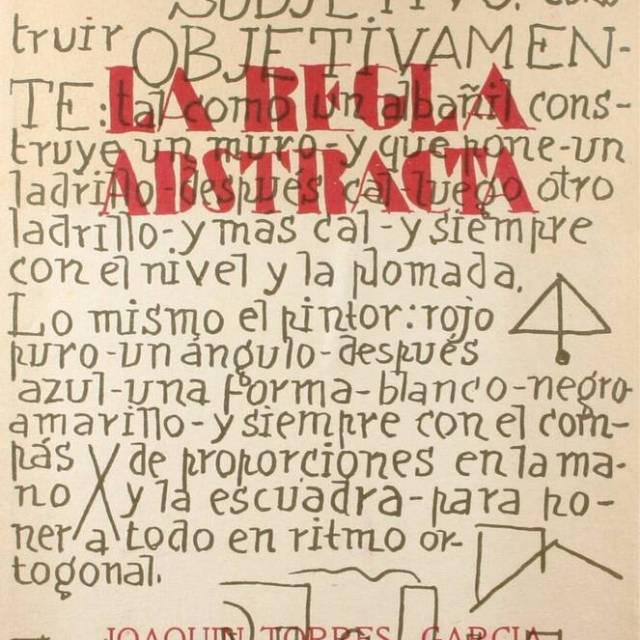 SUBJETIVO. cons
truir OBJETIVAMEN-
TE: tal como un albañil cons-
LA REGLA
truye un muro-y que pone-un
ABSTRACTA
ladrillo-después cal-luego otro
ladrillo-y mas cal-y siempre
con el nivel y la plomada.
Lo mismo el pintor: rojo
puro-un ángulo-después
azul-una forma-blanco-negro
amarillo-y siempre con el com-
pás de proporciones en la ma-
no y la escuadra-para po-
ner a todo en ritmo or-
togonal.
JOAQUIN TORRES GARCIA